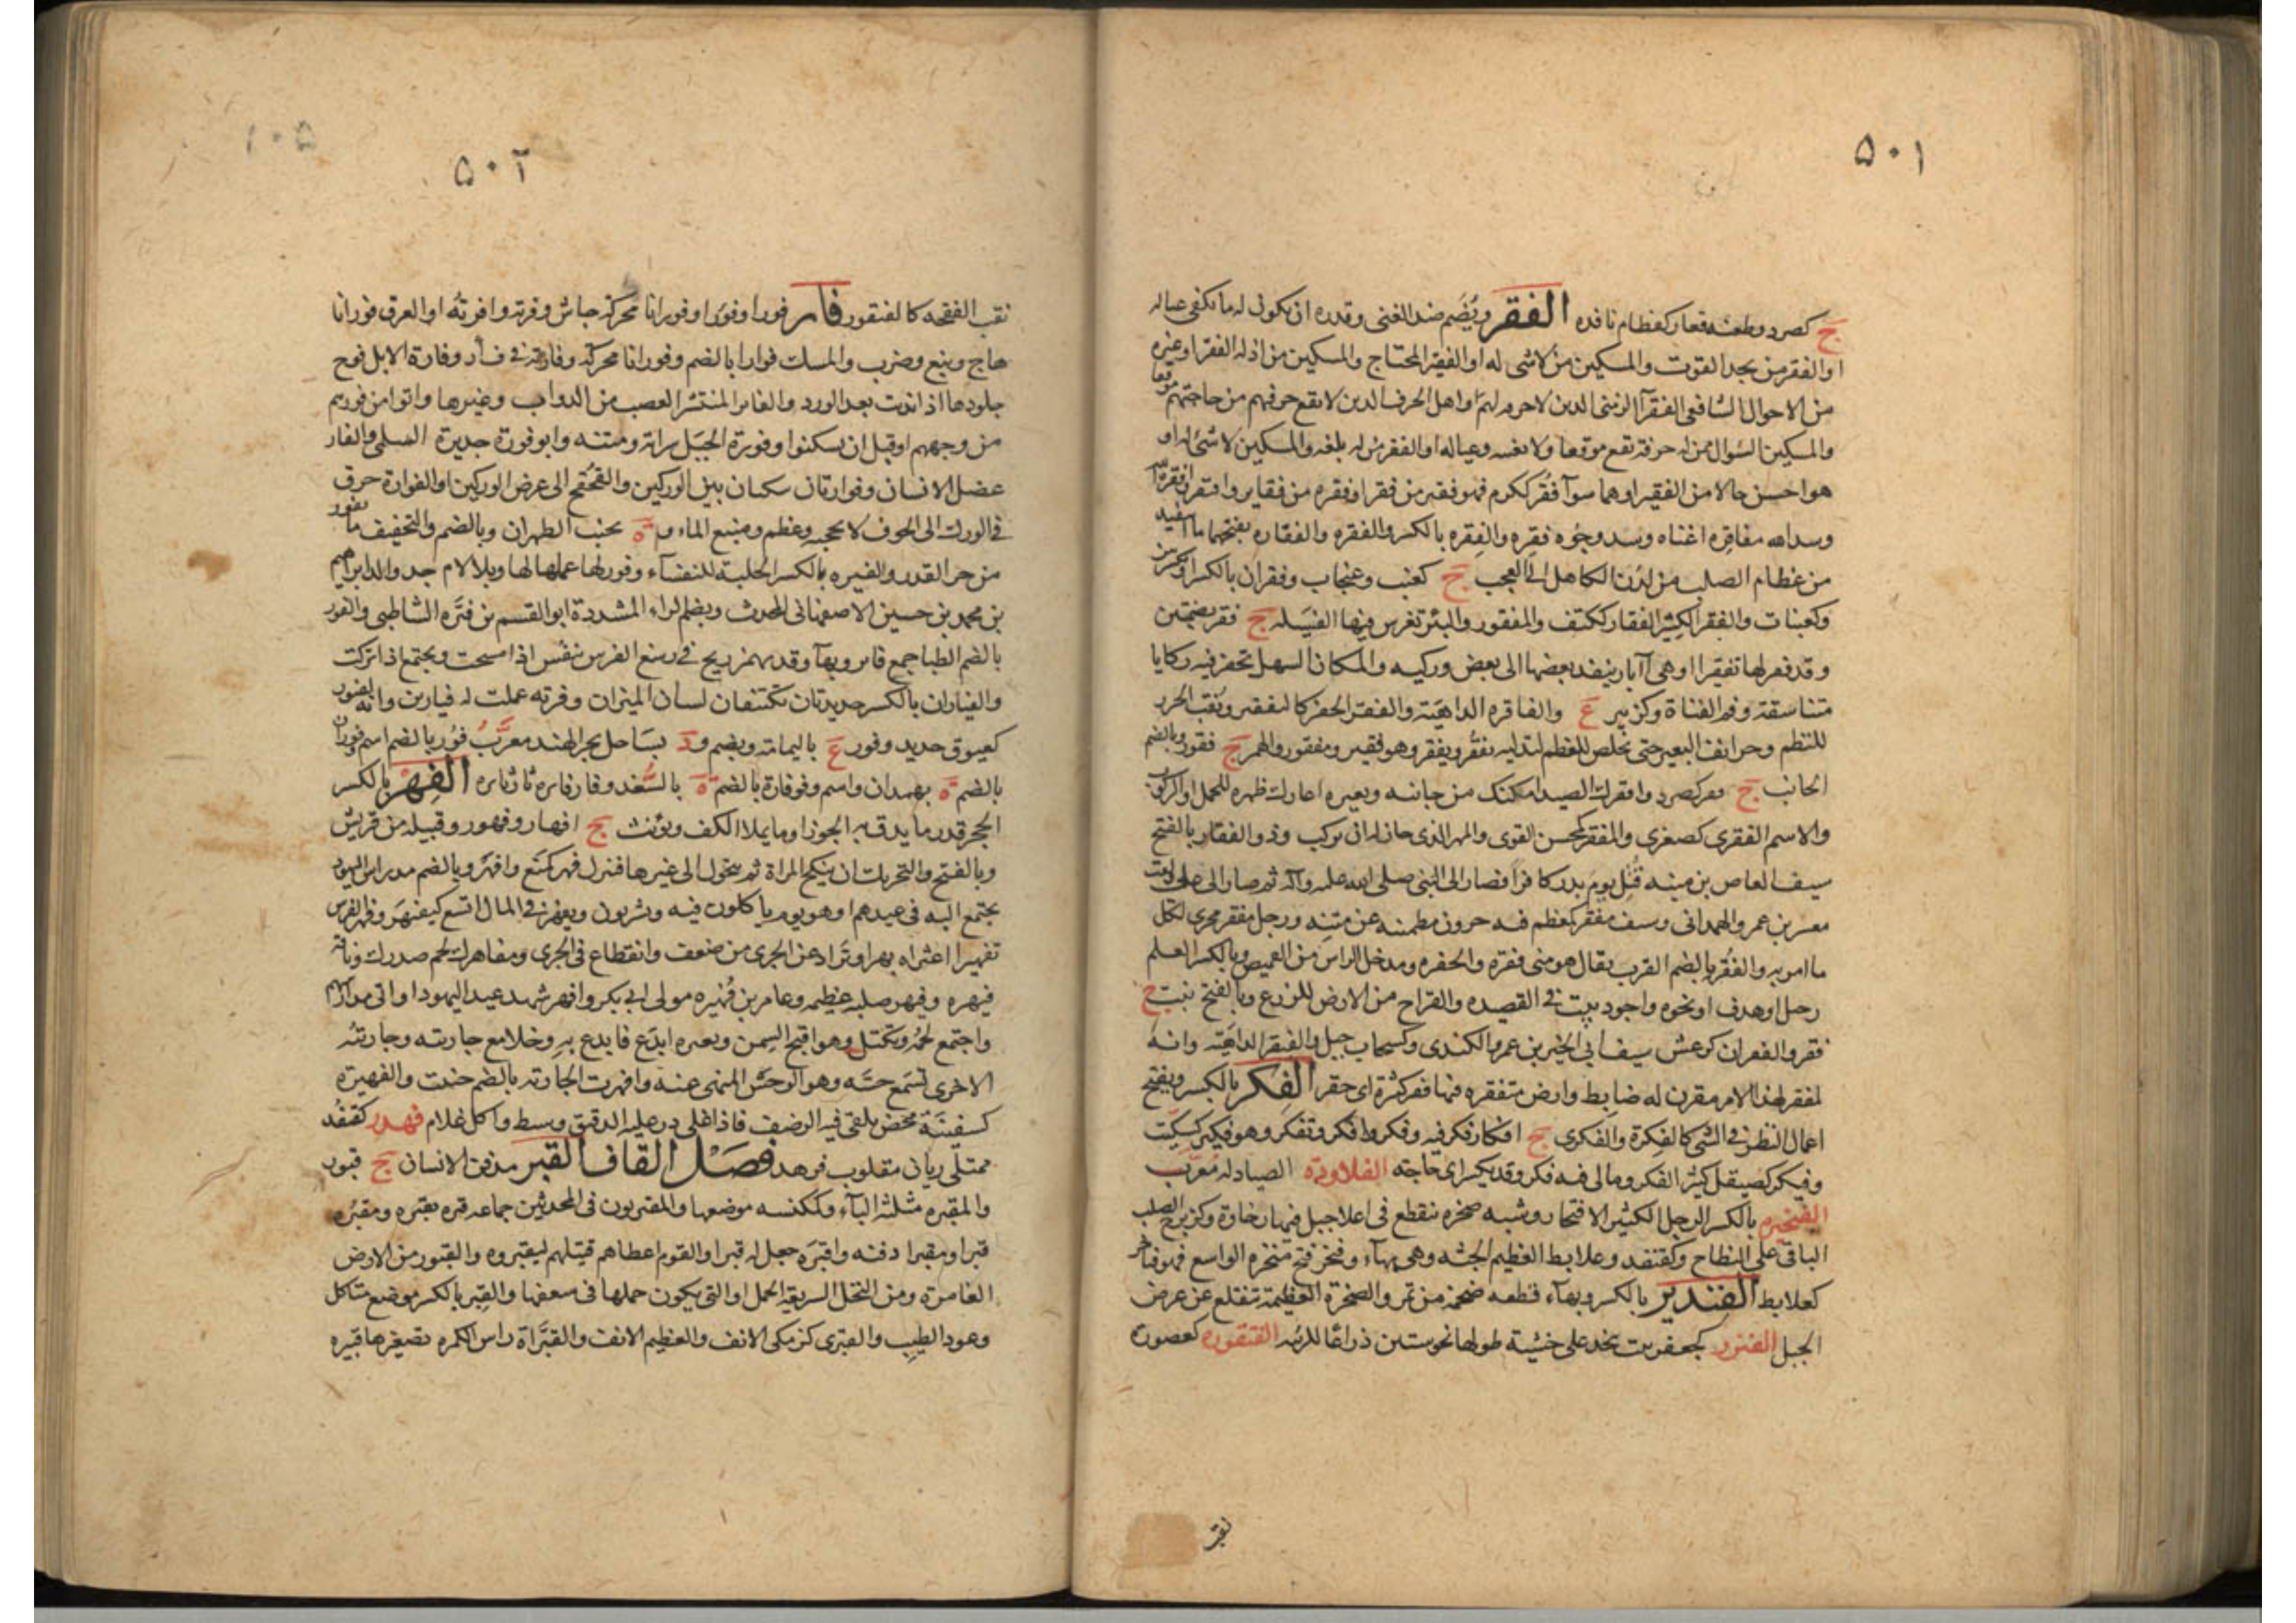 ۵۰۱
ج كصرد وطعنه فغار كقطام نافذه الفقر ويُضَم ضد الغنى وقدره ان يكون له ما يكفى عياله
او الفقير من يجد القوت والمسكين من لا شى له او الفقير المحتاج والمسكين من اذله الفقر او غيره
من الاحوال الشافعى الفقرآ الزمنى الذين لا حرفه لهم او اهل الحرف الذين لا تقع حرفهم من حاجتهم موقعا
والمسكين السوال ممن له حرفة تقع موقعا ولا تغنيه وعياله او الفقير من له بلغه والمسكين لا شئ له او
هو احسن حالا من الفقير او هما سوآ فقُر ككرم فهو فقير من فقرا وفقيره من فقاير وافتقر وافقره الله
وسد الله مفاقره اغناه وسد وجوه فقره والفِقره بالكسر والفقره والفقاره بفتحهما ما
من عظام الصلب من لدن الكاهل الى العجب ج كعنب وسحاب وفقران بالكسر
وكعنبات والفقير الكسير الفقار ككتف والمفقور والبئر تغرس فيها الفسيله ج فقر بضمتين
وقد فقر لها تفقيرا او هى آبار ينفد بعضها الى بعض وركيه والمكان السهل تحفر فيه ركايا
متناسقة وفم القناة وكزبير ع والفاقره الداهيَة والفقر الحفر كالتفقير وثقب الخرز
للنظم وحز انف البعير حتى يخلص للعظم لتذليله يفقُر ويفقر وهو فقير ومفقور والهم ج فقور وبالضم
الجانب ج فقر كصرد وافقرك الصيد امكنك من جانبه وبعيره اعارك ظهره للحمل او الركوب
والاسم الفقرى كصغرى والمفقر كمحسن القوى والمهر الذى حان له ان يركب وذو الفقار بالفتح
سيف العاص بن منبه قُتِل يوم بدر كافرا فصار الى النبى صلى الله عليه وآله ثم صار الى على
معر بن عمرو الهمدانى وسيف مفقر كمعظم فيه حزوز مطمئنه عن متنِه ورجل مفقر مجزى لكل
ما امر به والفُقر بالضم القرب يقال هو منى فقره والحفره ومدخل الراس من القميص وبالكسر العلم
رجل او هدف او نحوه واجود بيت فى القصيده والقراح من الارض للزرع وبالفتح نبت ج
فقر والفقران كرعش سيف ابى الخير بن عمرو الكندى وكسحاب جبل والفيقر الداهيَة وانه
لمفقر لهذا الامر مقرن له ضابط وارض متفقره فيها فقر كثيرة اى حفر الفِكر بالكسر ويفتح
اعمال النظر فى الشى كالفِكرة والفكرى ج افكار فكر فيه وفكر وافكر وتفكر وهو فكير كسِكّيت
وفيكر كصيقل كثير الفكر ومالى فيه فكر وقد يكسر اى حاجته الفلاورة الصيادله مُعرّب
الفنخيره بالكسر الرجل الكثير الافتخار وشبه صخره تنقطع فى اعلا جبل فيها رخاوة وكزبرج الصلب
الباقى على النطاح وكقنفد وعلابط العظيم الجثه وهى بهآء وفنخر فتح منخره الواسع فهو فناخر
كعلابط الفندير بالكسر وبهآء قطعه ضخمة من تمر والصخرة العظيمة تنقلع عن عرض
الجبل الفنزر كجعفر بيت يتخذ على خشبة طولها نحو ستين ذراعا للربئه الفنقوره كعصفورة
نقب
۵۰۲
۱۰۵
نقب الفقحه كالفنقور فار فورا وفوُرا وفورانا محركة جاش وفرته وافرتُه او العرق فورانا
هاج ونبع وضرب والمسك فوارا بالضم وفورانا محركة وفارته فى فـأر وفارة الابل فوح
جلودها اذا نديت بعد الورد والفاير المنتشر العصب من الدواب وغيرها واتوا من فورهم
من وجههم او قبل ان يسكنوا وفورة الجبَل سراته ومتنه وابو فورة حدير السلمى والفار
عضل الانسان وفوارتان سكتان بين الوركين والقحقح الى عرض الورك او الفوارة خرق
فى الورك الى الجوف لا يحجبه عظم ومنبع الماء و ة بجنب الظهران وبالضم والتخفيف ما يفور
من حر القدر والفيره بالكسر الحلبة للنفسآء وفور لها عملها لها وبلا لام جد والد ابراهيم
بن محمد بن حسين الاصفهانى المحدث وبضم الراء المشددة ابو القسم بن فيُّره الشاطبى والفور
بالضم الظبا جمع فاير وبهآ وقد يهمز ريح فى رسغ الفرس تنفُش اذا مسحت وتجتمع اذا تركت
والفياران بالكسر حديدتان تكتنفان لسان الميزان وفرته عملت له فيارين وانه لفيور
كعيوق حديد وفور ع باليمامة وبضم و د بساحل بحر الهند معرَّبُ پور بالضم اسم وفوران
بالضم ة بهمدان واسم وفوفارة بالضم ة بالسُّغد وفار فايره ثار ثايره الفِهر بالكسر
الحجر قدر ما يدق به الجوز او ما يملا الكف ويؤنث ج افهار وفهور وقبيله من قريش
وبالفتح والتحريك ان ينكح المراة ثم يتحول الى غيرها فينزل فهر كمَنع وافهَر وبالضم مدراس اليهود
يجتمع اليه فى عيدهم او هو يوم ياكلون فيه ويشربون وتفهر فى المال اتسع كيفهَر وفهر الفرس
تفهيرا اعتراه بهر او تَرَاد عن الجرى من ضعف وانقطاع فى الجرى ومفاهرك لحم صدرك وناقة
فيهره وفيهر صلبه عظيمه وعامر بن فُهَيره مولى ابى بكر وافهر شهد عيد اليهود او اتى مدراسهم
واجتمع لحمُه وتكتل وهو اقبح السِمن وبعيره ابدَع فابدع بِهِ وخلا مع جارىته وجارىتُه
الاخرى تسمَع حسّه وهو الوجس المنهى عنه وافهرت الجاريه بالضم ختنت والفهيرة
كسفينَة محض يلقى فيه الرضف فاذا غلى ذر عليه الدقيق وسيط واكل غلام فهدر كقفُد
ممتلى ريان مقلوب فرهد فصَل القاف القبر مدفن الانسان ج قبور
والمقبره مثلثة البآء وكمكنسه موضعها والمقبريون فى المحدثين جماعه قبره يقبره ومقبُره
قبرا ومقبرا دفنه واقبرَه جعل له قبرا والقوم اعطاهم قتيلهم ليقبروه والقبور من الارض
الغامضة ومن النخل السريعة الحمل او التى يكون حملها فى سعفها والقِبر بالكسر موضع متاكل
فى عود الطيب والقبرى كزمكى الانف والعظيم الانف والقبراة راس الكمره تصغيرها قبيره